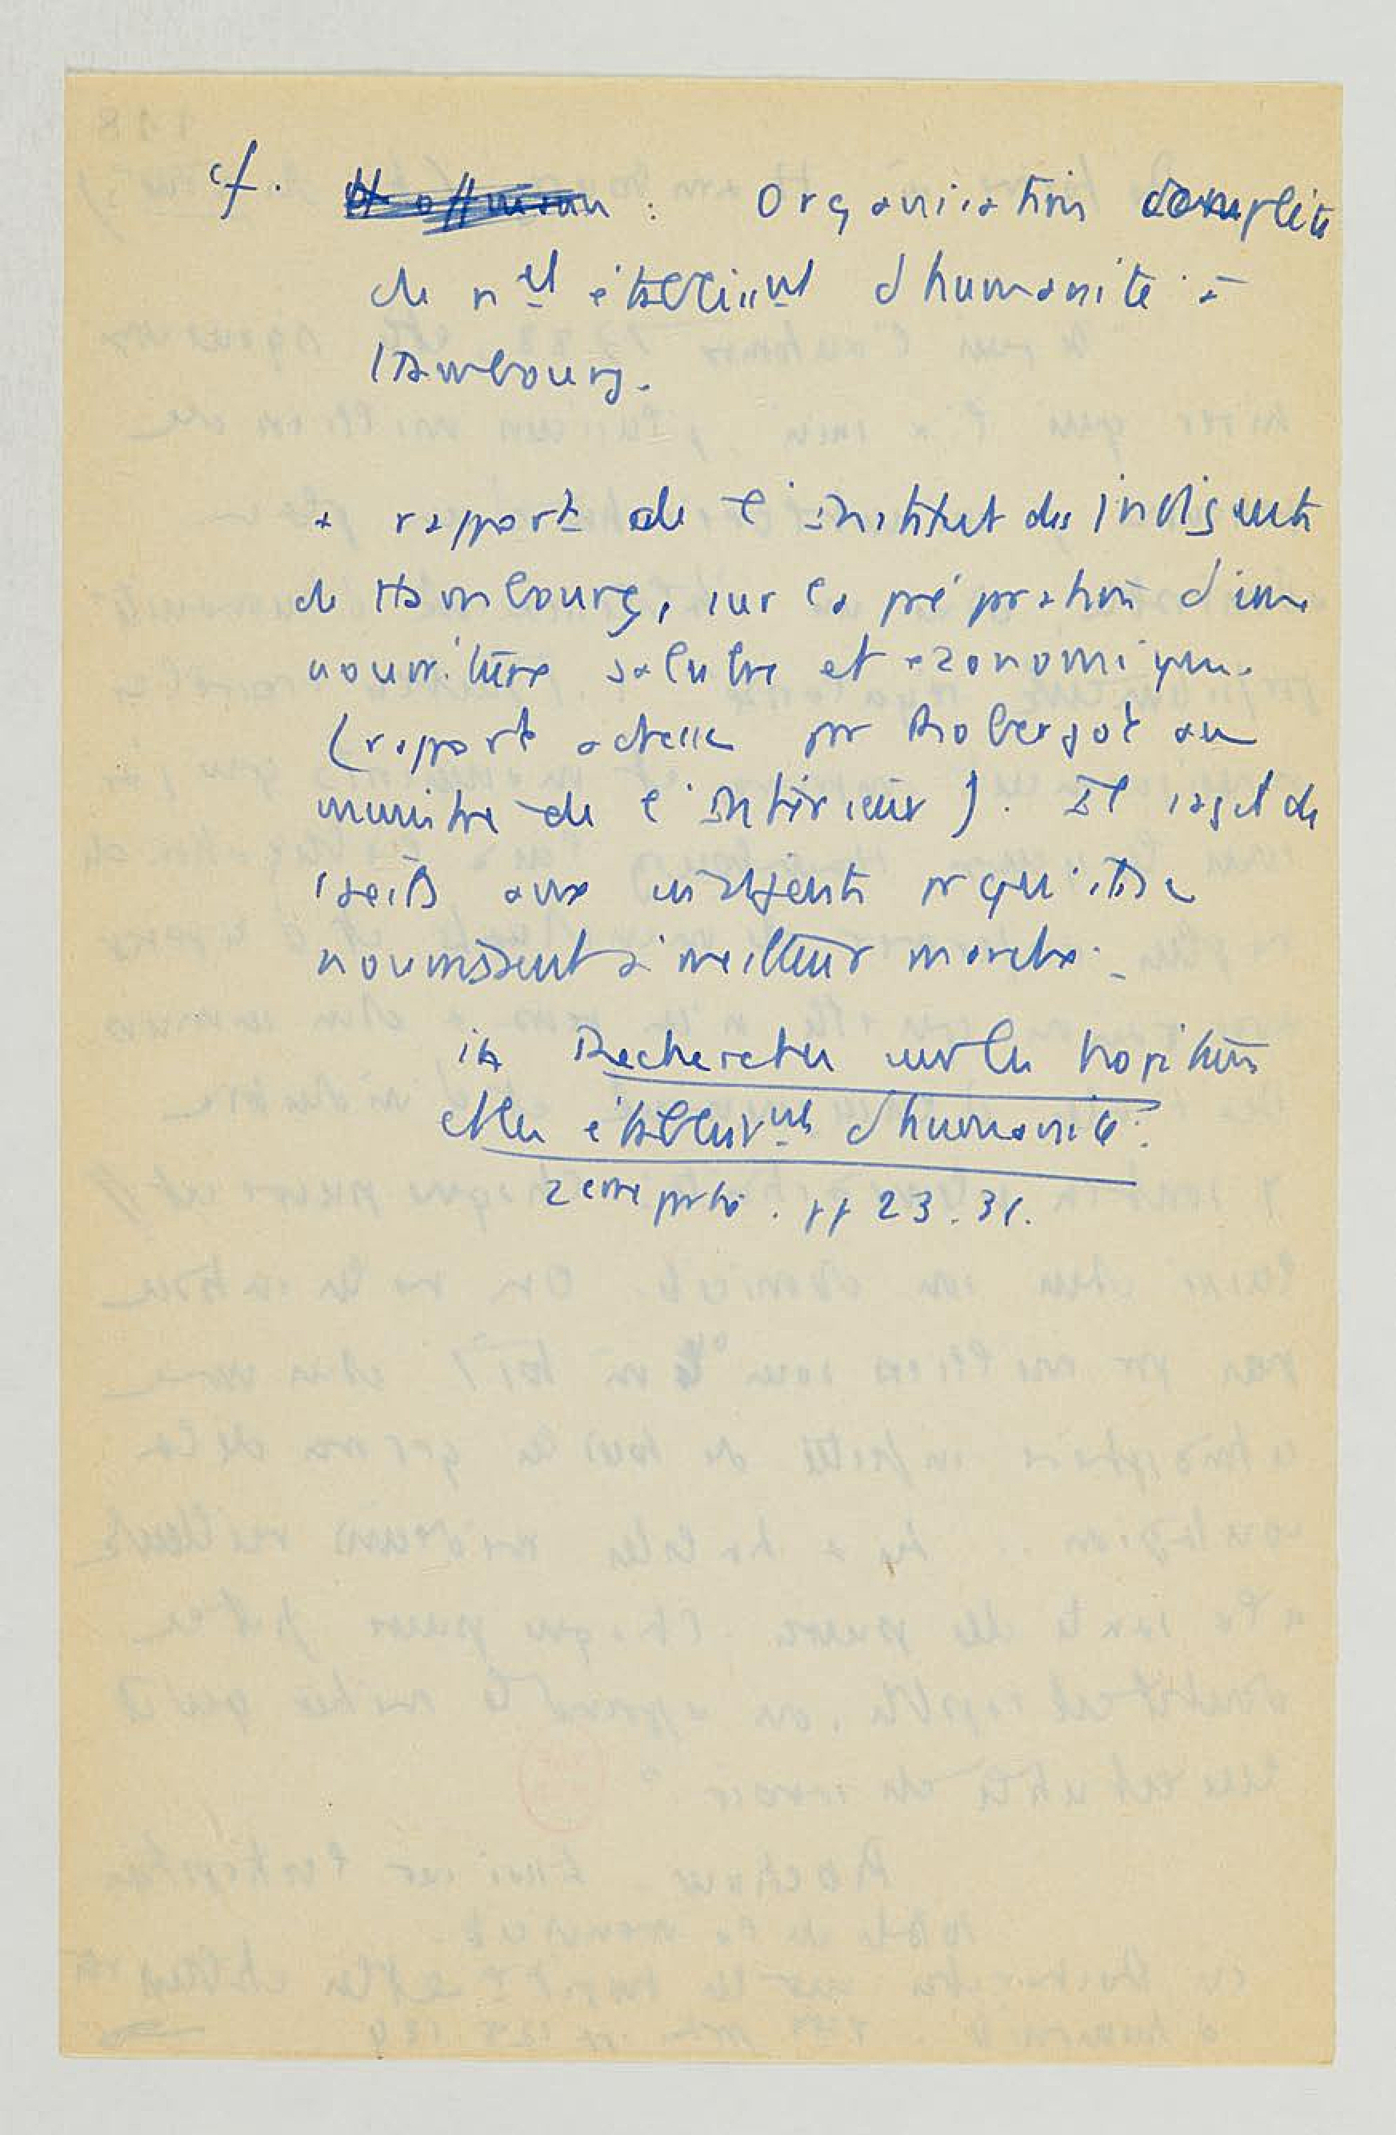 cf. Hoffmann : Organisation complète
de nel établissmt d'humanité à
Hambourg.
+ rapport de l'institut des indigents
de Hambourg, sur la préparation d'une
nourriture salubre et économique.
(rapport adressé par Robergot au
ministre de l'Intérieur). Il s'agit de
aux indigents
nourrissent à meilleur marché.
in Recherches sur les hopitaux
et les établissmts d'humanité.
2eme partie. pp 23.31.